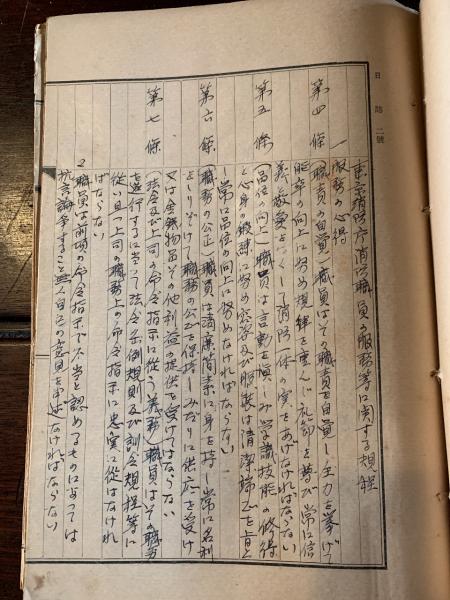 日誌 二號
東京消防庁消防職員の服務等に関する規程
一 服務の心得
第四條 (職責の自覚)職員はその職責を自覚し全力を挙げて
能率の向上に努め規律を重んじ礼節を尊び常に信
義敬愛をつくして消防一体の実をあげなければならない
第五條 (品位の向上)職員は言動を慎しみ学識技能の修得
と心身の鍛錬に努め容姿及び服装は清潔端正を旨とし
常に品位の向上に努めなければならない
第六條 (職務の公正)職員は清廉簡素に身を持し常に名利
をしりぞけて職務の公正を保持しみだりに供応を受け
又は金銭物品その他利益の提供を受けてはならない
第七條 (法令及び上司の命令指示に従う義務)職員はその職務
を遂行するに当って法令条例規則及び訓令規程等に
従い且つ上司の職務上の命令指示に忠実に従はなけれ
ばならない
2 職員は前項の命令指示で不当と認めるものにあっては
抗言論争することなく自己の意見を申述なければならない